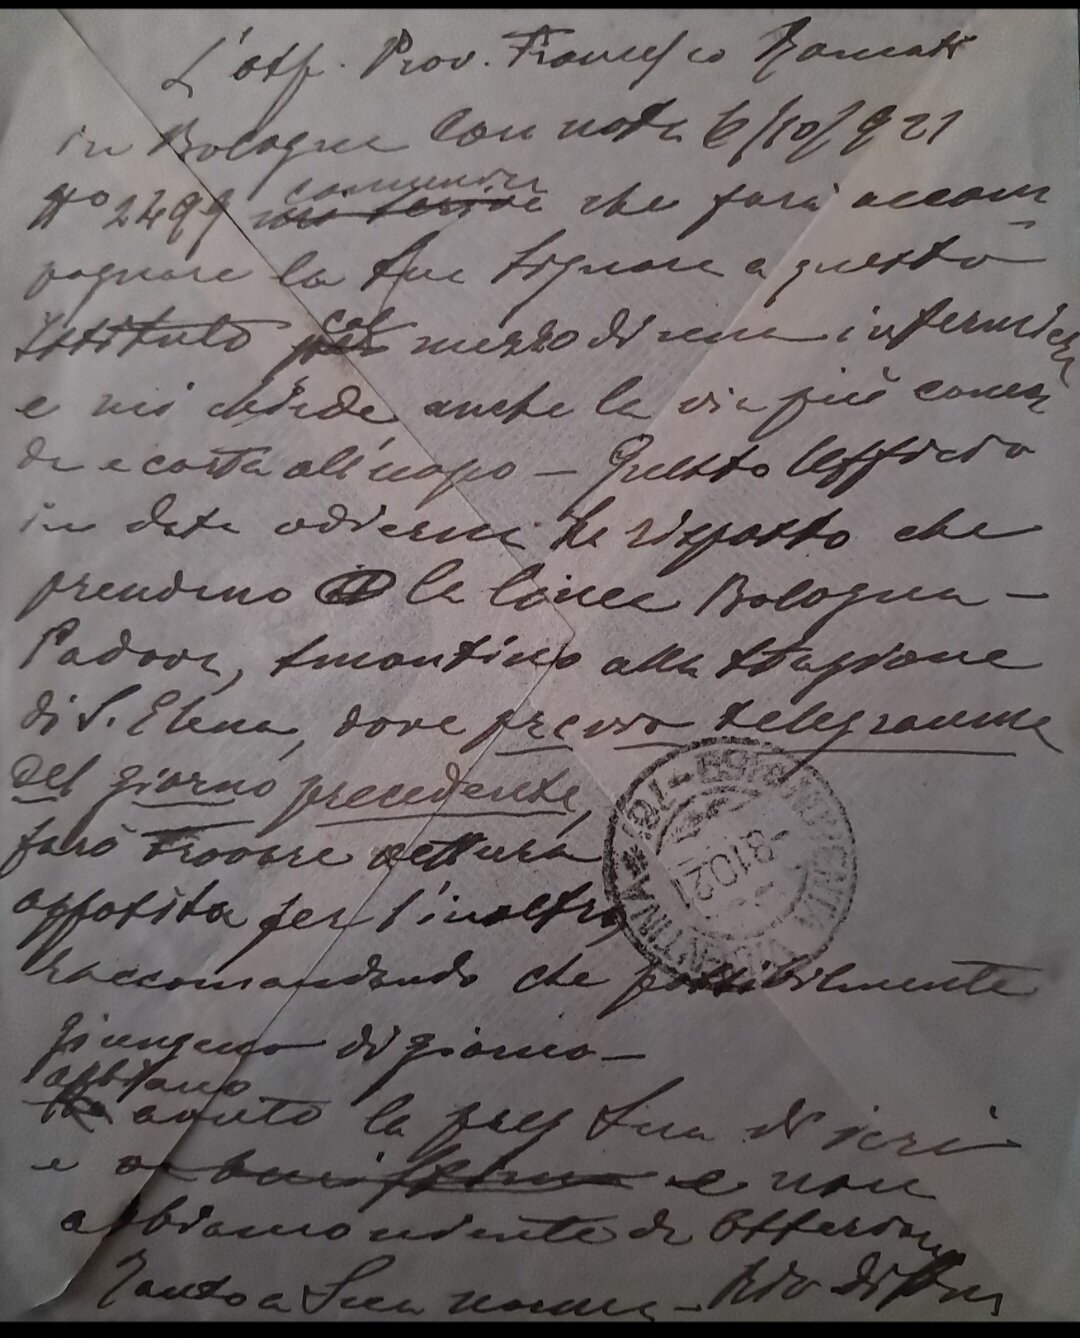 L'osp. Prov. Francesco Roncati
in Bologna con nota 6/10/921
N° 2499 comunica che farà accom
pagnare la Sua Signora a questo
Istituto col mezzo di una infermiera
e mi chiede anche la via più como
da e corta all'uopo - Questo Ufficio
in data odierna ha risposto che
prendino la linea Bologna -
Padova, smontino alla stazione
di S. Elena, dove previo telegramma
del giorno precedente,
farò trovare vettura
apposita per l'inoltro
raccomandando che possibilmente
giungano di giorno -
abbiamo
avuto la preg Sua di ieri
e non
abbiamo niente da
Tanto a Sua norma -
VICENTINA
81021